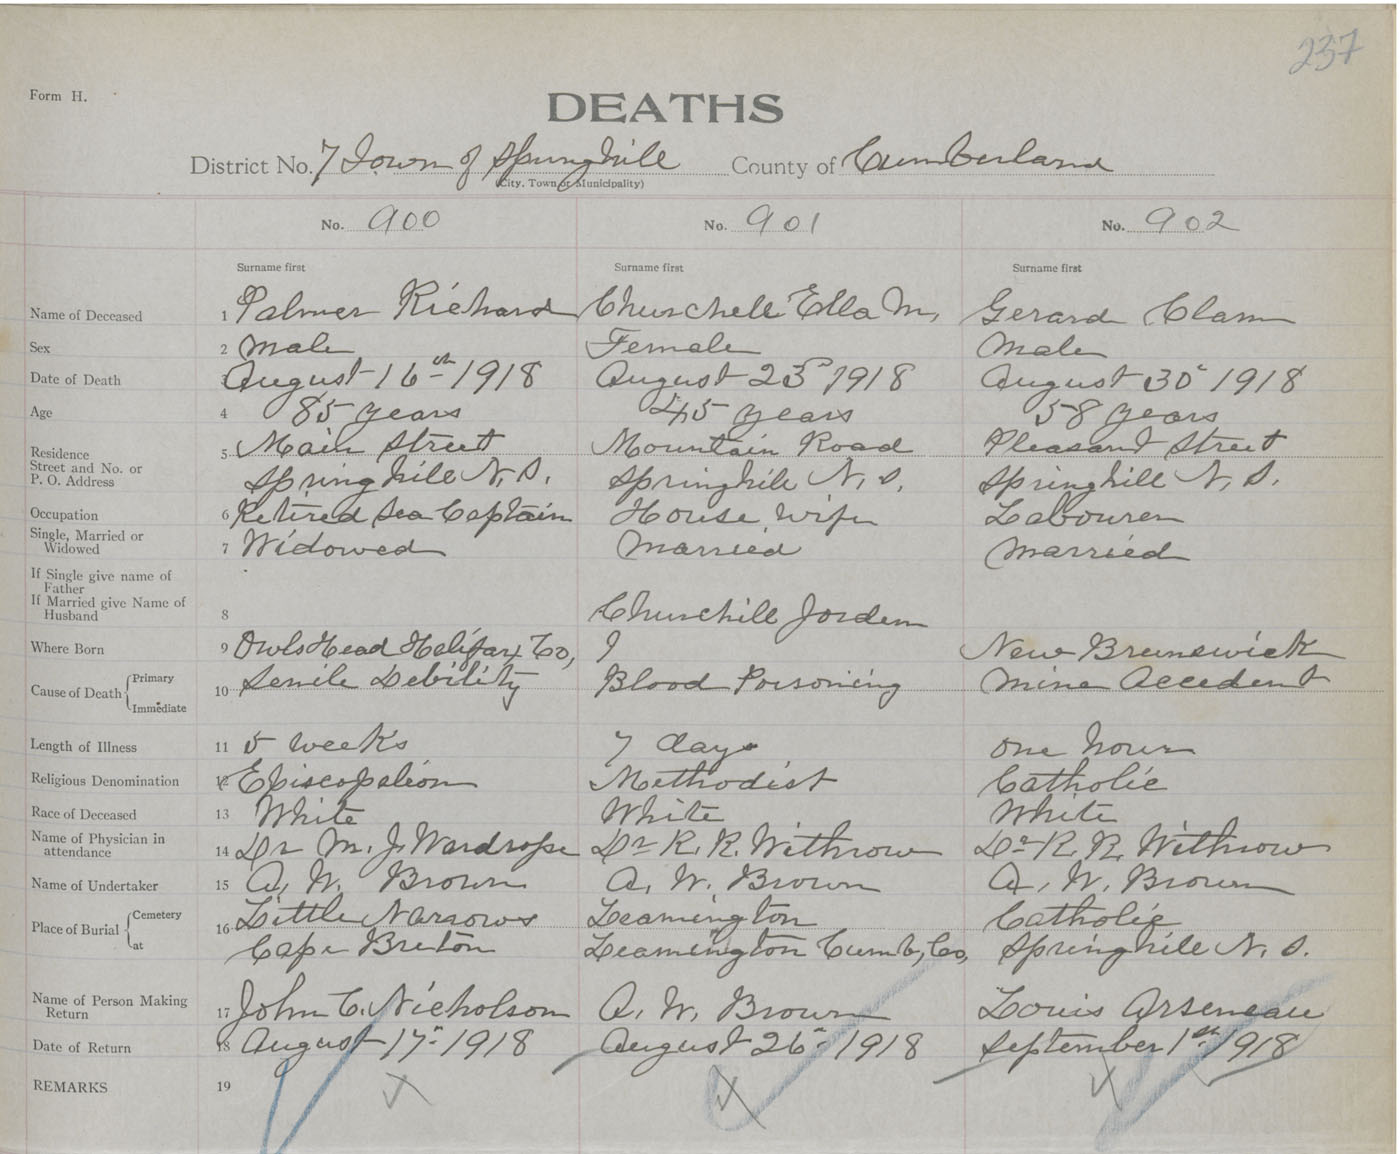 237
Form H.
DEATHS
District No. 7 Town of Springhill County of Cumberland
(City, Town or Municipality)
No. 900 No. 901 No. 902
Surname first Surname first Surname first
Name of Deceased 1 Palmer Richard Churchell Ella M. Gerard Clam
Sex 2 Male Female Male
Date of Death 3 August 16th 1918 August 23rd 1918 August 30th 1918
Age 4 85 years 45 years 58 years
Residence Street and No. or P. O. Address 5 Main Street Mountain Road Pleasant Street
Springhill N. S. Springhill N. S. Springhill N. S.
Occupation 6 Retired Sea Captain House wife Labourer
Single, Married or Widowed 7 Widowed Married Married
If Single give name of Father
If Married give Name of Husband 8 Churchill Jordem
Where Born 9 Owls Head Halifax Co, ? New Brunswick
Cause of Death { Primary Immediate 10 Senile Debility Blood Poisoning Mine Accedent
Length of Illness 11 5 weeks 7 days one hour
Religious Denomination 12 Episcopalion Methodist Catholic
Race of Deceased 13 White White White
Name of Physician in attendance 14 Dr M. J. Wardrope Dr R. R. Withrow Dr R. R. Withrow
Name of Undertaker 15 A. W. Brown A. W. Brown A. W. Brown
Place of Burial { Cemetery at 16 Little Narrows Leamington Catholic
Cape Breton Leamington Cumb, Co, Springhill N. S.
Name of Person Making Return 17 John C. Nicholson A. W. Brown Louis Arseneau
Date of Return 18 August 17th 1918 August 26th 1918 September 1st 1918
REMARKS 19 X X X